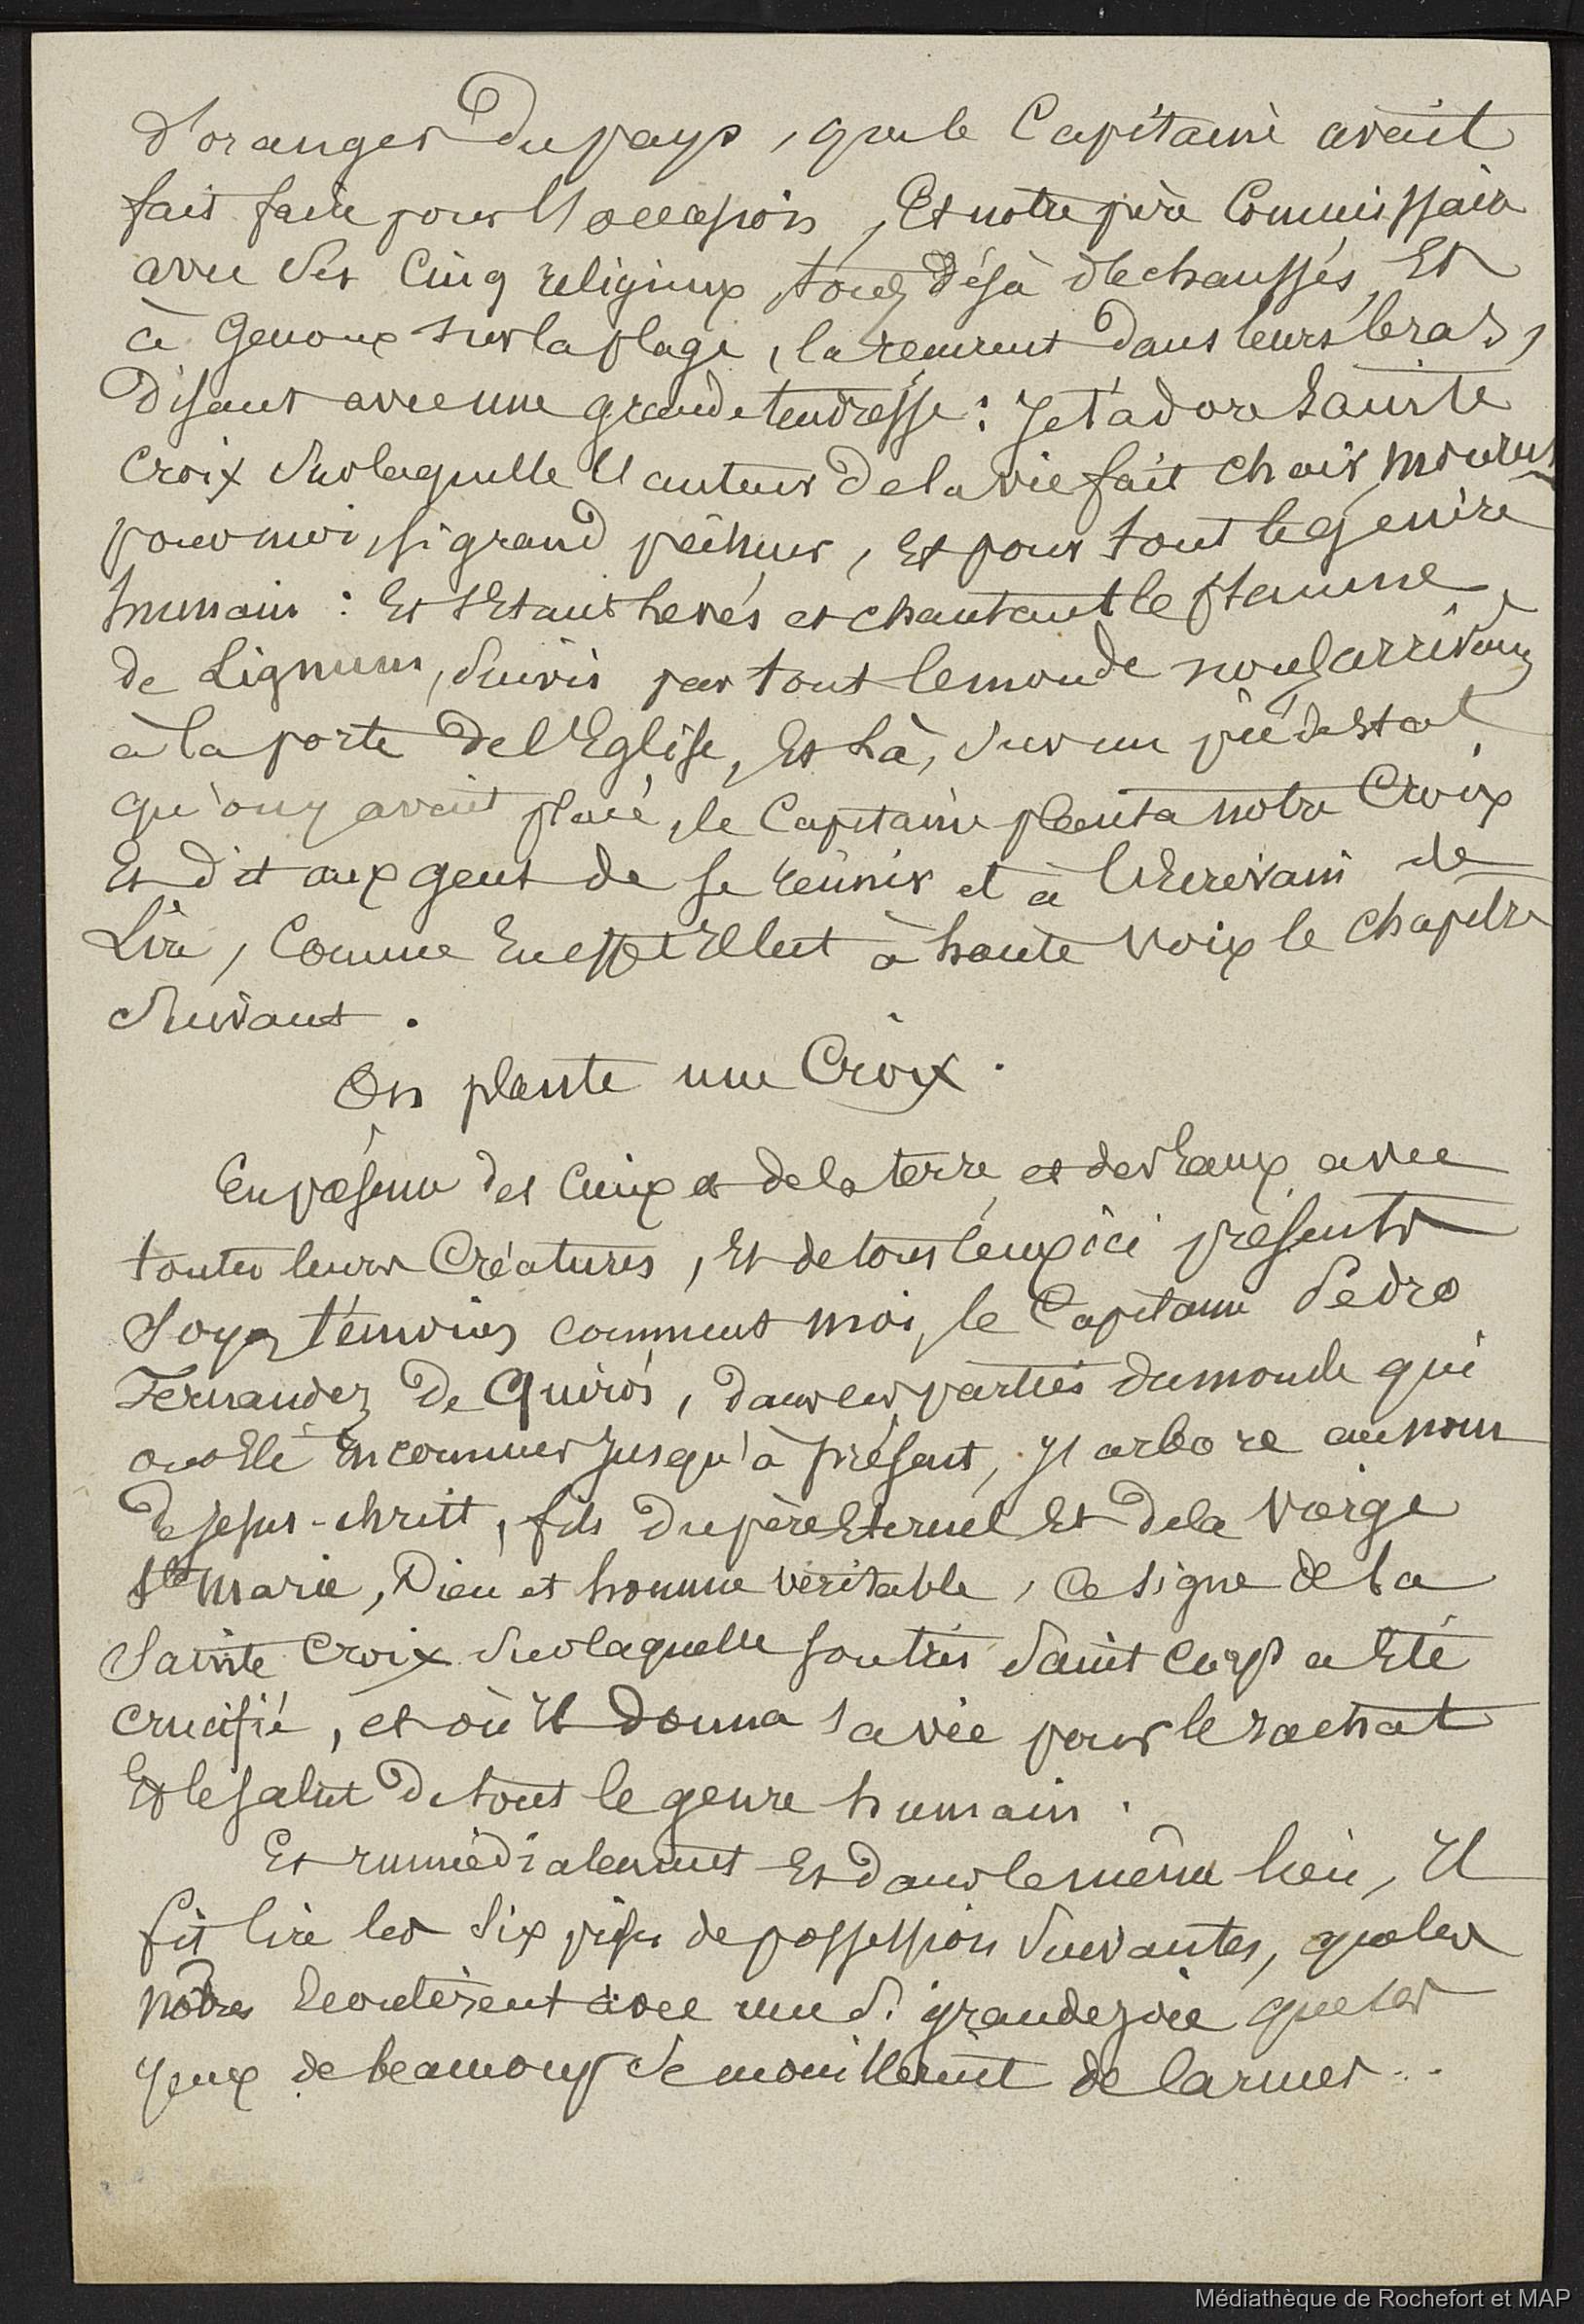 d'oranges du pays, que le Capitaine avait
fait faire pour l'occasion, Et notre père Commissaire
avec ses Cinq religieux, tous déjà déchaussés, Et
à Genoux sur la plage, la reçurent dans leurs bras,
Disant avec une grande tendresse : Je t'adore Sainte
Croix sur laquelle l'auteur de la vie fait chair, mourut
pour moi, si grand pécheur, Et pour tout le genre
humain : Et s'étant levés et chantant le psaume
de Lignum, suivis par tout le monde nous arrivâmes
à la porte de l'Eglise, Et là, sur un piédestal
qu'on y avait placé, le Capitaine planta notre Croix
Et dit aux gens de se réunir et à l'Ecrivain de
Lire, Comme En effet Il lut à haute Voix le chapitre
Suivant.
On plante une Croix.
En présence des Cieux et de la terre et des Eaux avec
toutes leurs Créatures, Et de tous Ceux ici présents
Soyez témoins comment moi, le Capitaine Pedro
Fernandez De Quiros, dans les parties du monde qui
ont Eté Inconnues Jusqu'à présent, j'arbore au nom
De Jesus-christ, fils Du père Eternel Et de la Vierge
Ste Marie, Dieu et homme véritable, Ce signe de la
Sainte Croix sur laquelle son très saint Corps a Eté
crucifié, et où Il donna sa vie pour le rachat
Et le salut De tout le genre humain.
Et immédiatement Et dans le même lieu, Il
fit lire les Six prises de possession Suivantes, que les
nôtres Ecoutèrent avec une si grande joie que les
yeux de beaucoup se mouillèrent de larmes..
Médiathèque de Rochefort et MAP